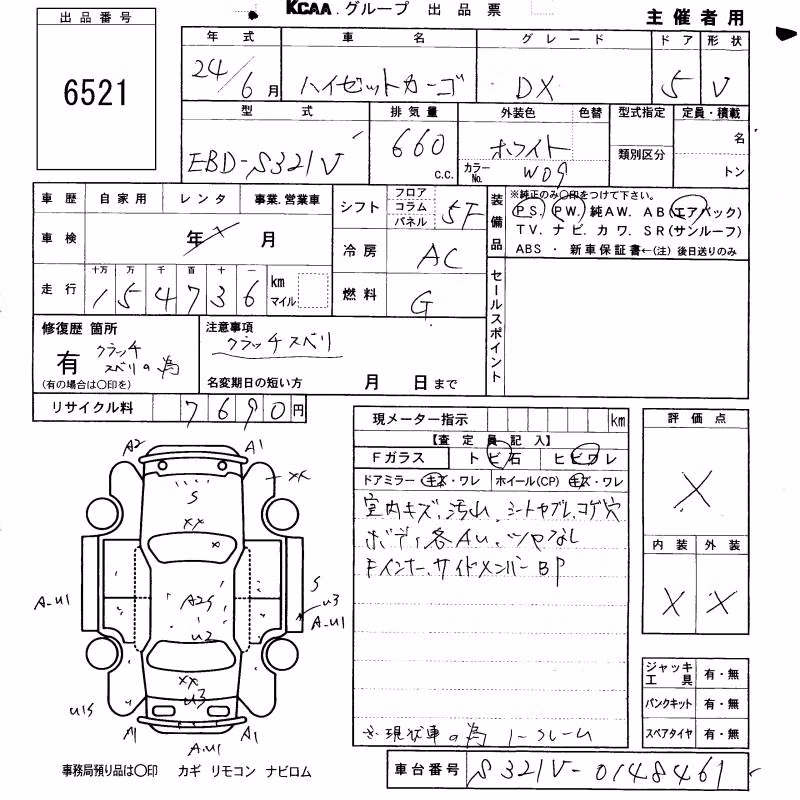 KCAA.グループ 出品票
主催者用
出品番号
6521
年式 車名 グレード ドア 形状
24/6月 ハイゼットカーゴ DX 5 V
型式 排気量 外装色 色替 型式指定 定員・積載
EBD-S321V 660 c.c. ホワイト 類別区分 名
カラーNo. W09 トン
車歴 自家用 レンタ 事業.営業車
車検 年 月
シフト フロア コラム パネル 5F
冷房 AC
燃料 G
走行 十万 万 千 百 十 一
154736 km マイル
装備品 ※純正のみ〇印をつけて下さい。
PS. PW. 純AW. AB(エアバック)
TV. ナビ. カワ. SR(サンルーフ)
ABS ・ 新車保証書←(注)後日送りのみ
セールスポイント
修復歴 箇所
有 クラッチスベリの為
(有の場合は〇印を)
注意事項
クラッチスベリ
名変期日の短い方 月 日まで
リサイクル料 7690円
現メーター指示 km
【査定員記入】
Fガラス トビ石 ヒビワレ
ドアミラー キズ・ワレ ホイール(CP) キズ・ワレ
室内キズ、汚れ、シートヤブレ、コゲ穴
ボディ各AU、ツヤなし
Fインナー、サイドメンバーBP
※現状車の為ノークレーム
評価点
X
内装 外装
X X
ジャッキ工具 有・無
パンクキット 有・無
スペアタイヤ 有・無
A2 A1
XX
S
XX
X
A2S
S
A-U1
U3
A-U1
U2
XX
U3
U1S
A1 A1
A.U1
事務局預り品は〇印 カギ リモコン ナビロム
車台番号 S321V-0148461